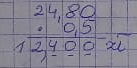 24,80
. 0,5
12,400 zł